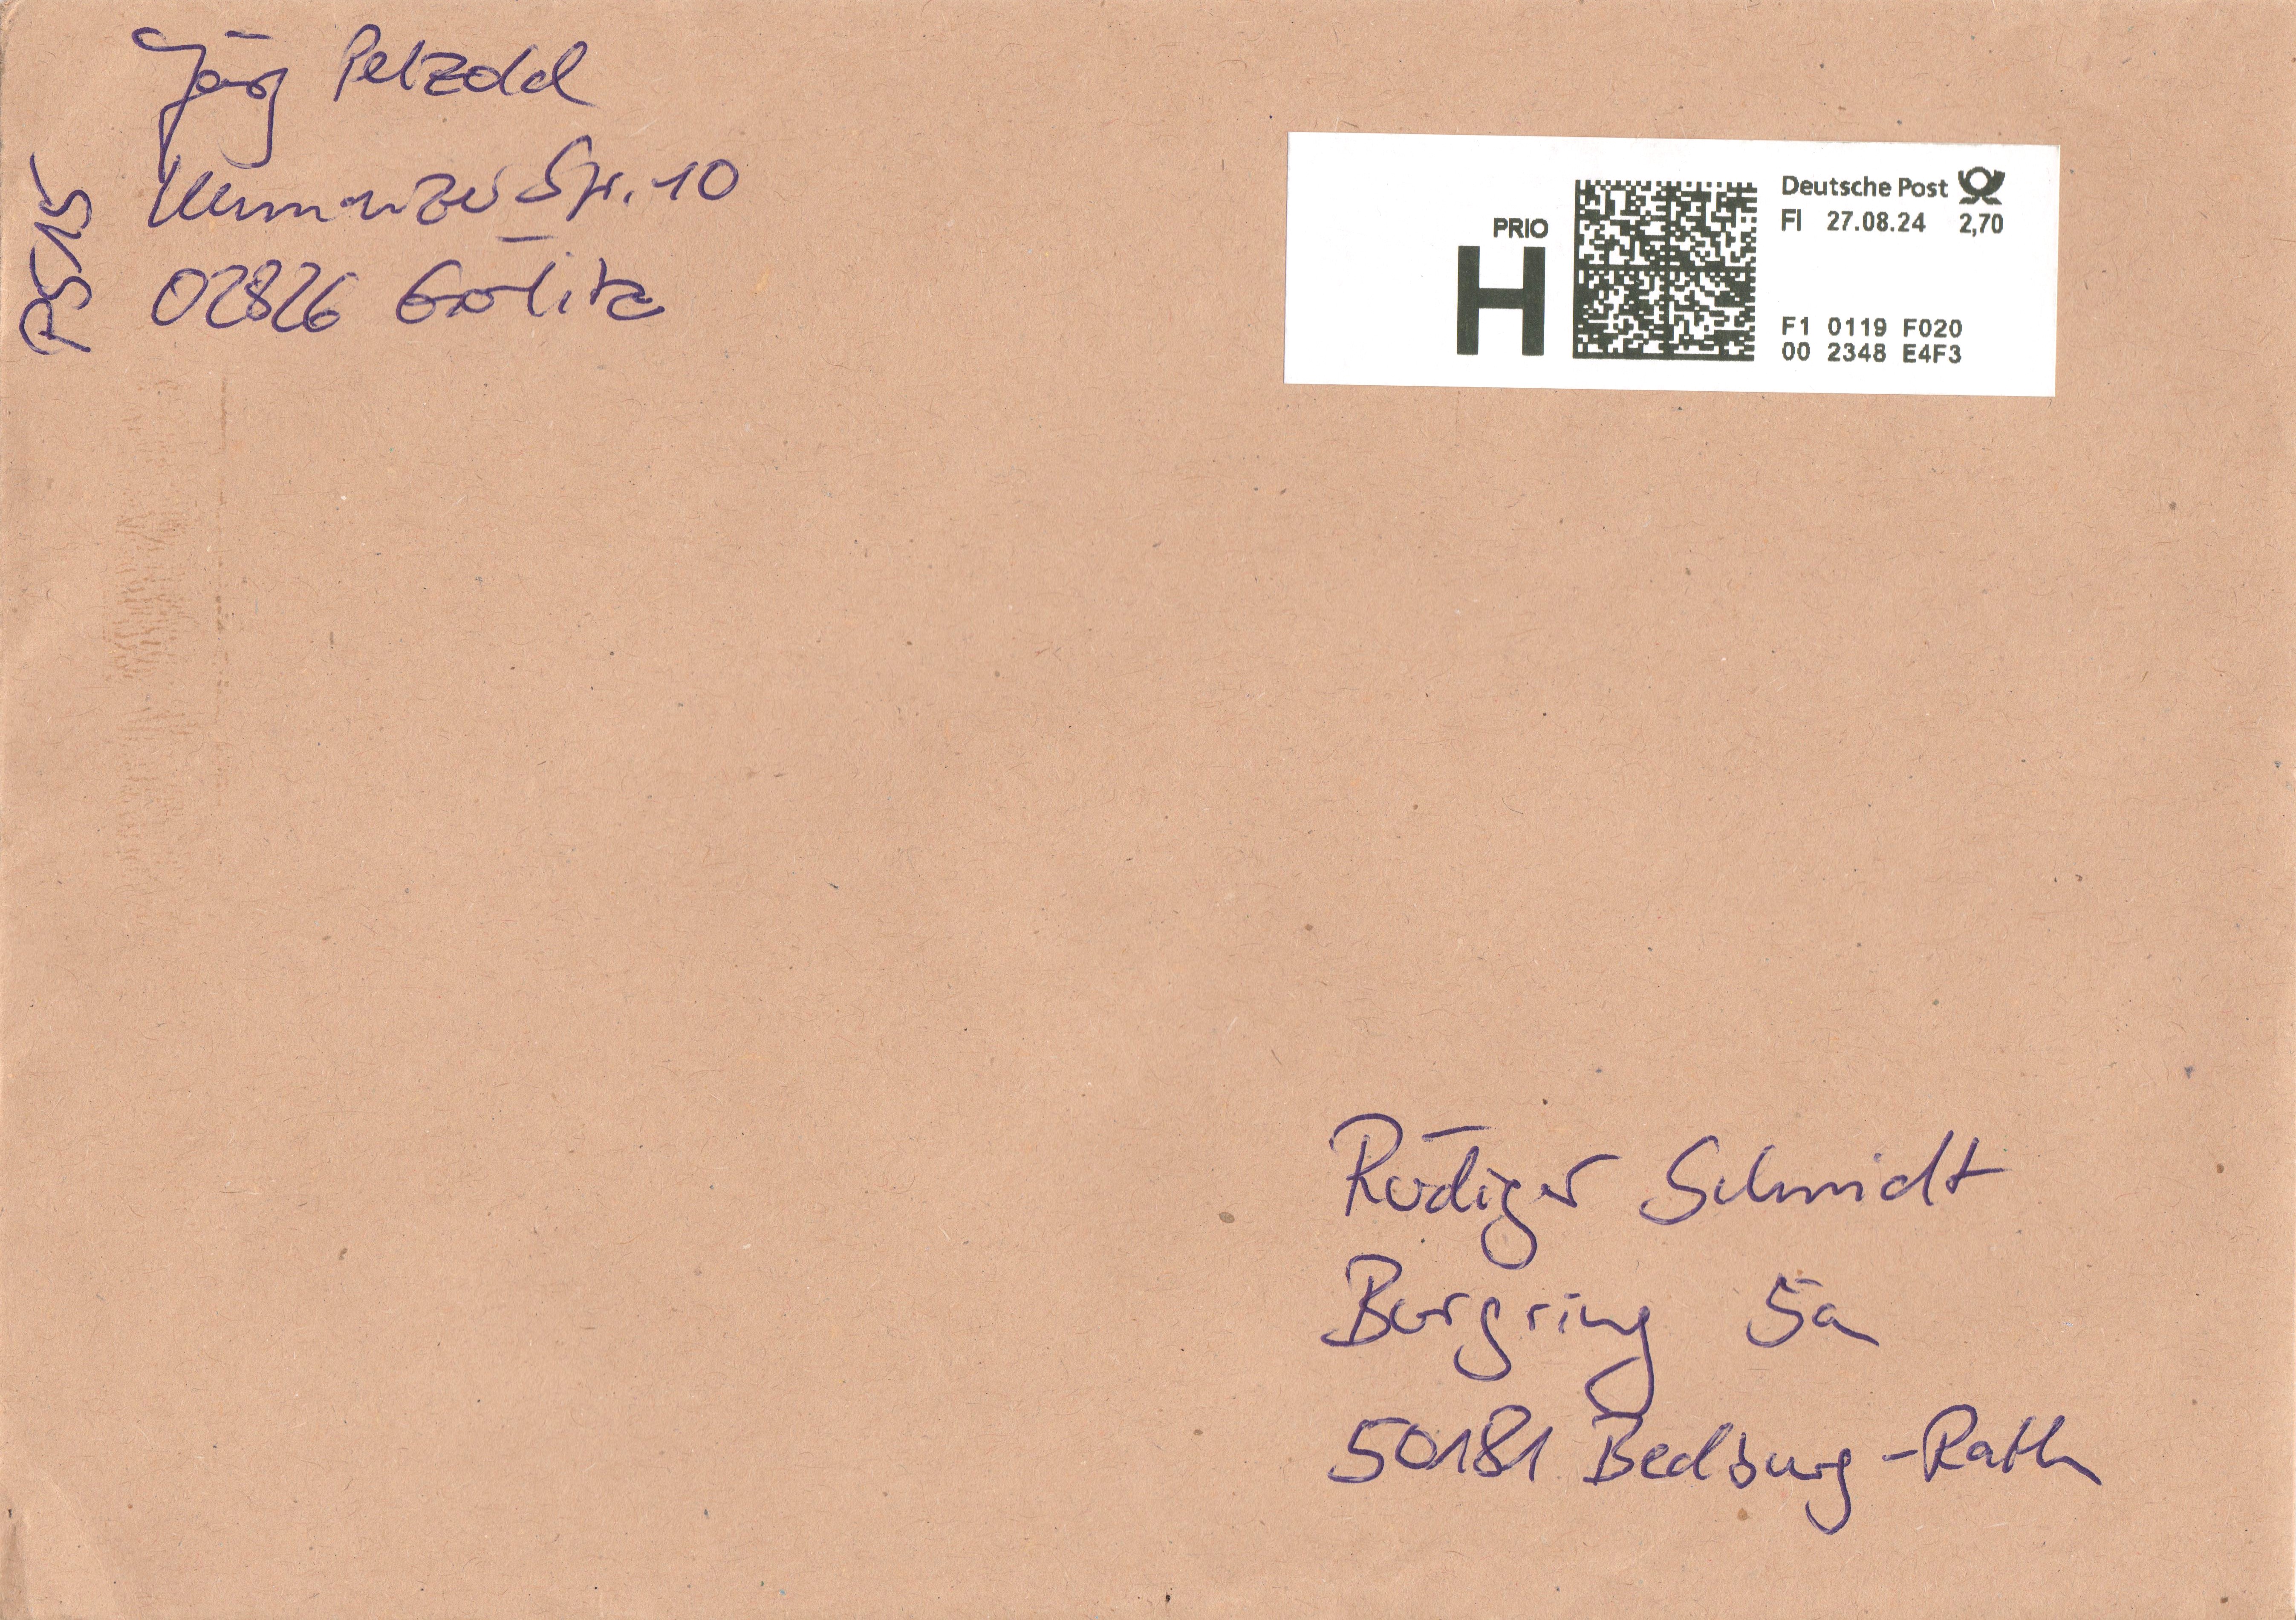 Jörg Petzold
Str. 10
02826 Görlitz
PRIO
H
Deutsche Post
FI 27.08.24 2,70
F1 0119 F020
00 2348 E4F3
Rüdiger Schmidt
Burgring 5a
50181 Bedburg-Rath